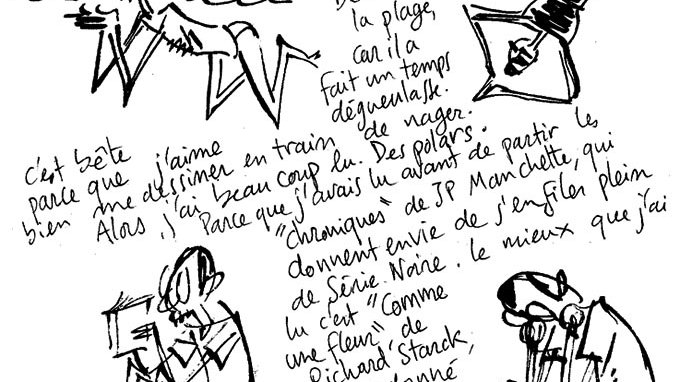 la plage,
car il a
fait un temps
dégueulasse.
c'est bête
parce que j'aime
bien me dessiner en train de nager.
Alors, j'ai beaucoup lu. Des polars.
Parce que j'avais lu avant de partir les
"chroniques" de JP Manchette, qui
donnent envie de s'enfiler plein
de Série Noire. le mieux que j'ai
lu c'est "Comme
une fleur" de
Richard Starck,